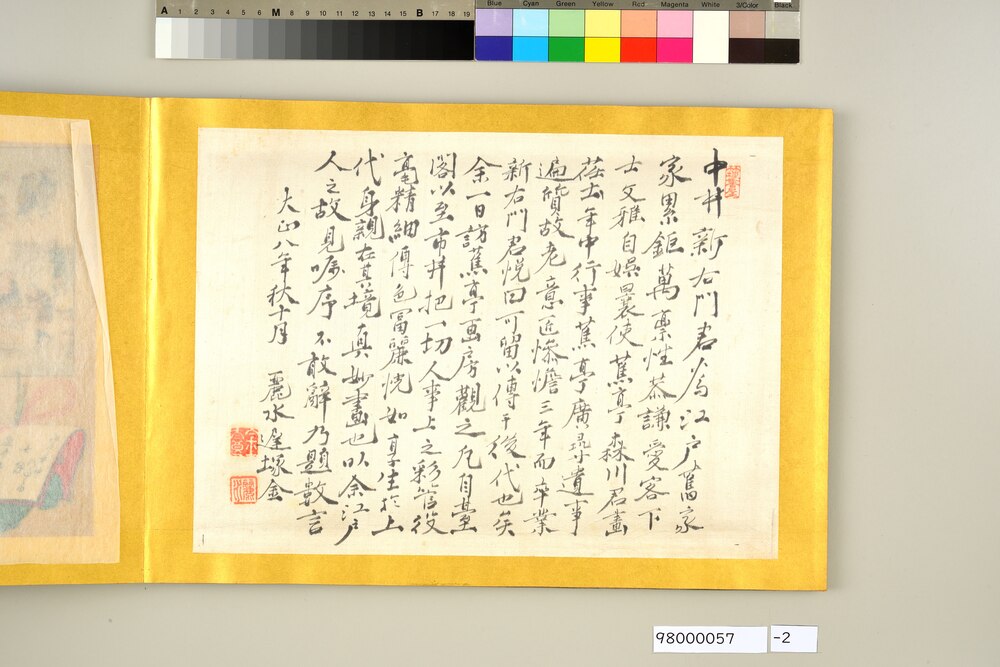 A 1 2 3 4 5 6 M 8 9 10 11 12 13 14 15 B 17 18 19
Blue Cyan Green Yellow Red Magenta White 3/Color Black
中井新右門君為江戶舊家
家累鉅萬稟性恭謙愛客下
士文雅自娯曩使蕉亭森川君畫
年中行事蕉亭廣尋遺事
遍質故老意匠惨憺三年而卒業
新右門君悦曰可留以傳于後代也矣
余一日訪蕉亭画房觀之凡自臺
閣以至市井把一切人事上之彩管後
毫精細傅色冨麗恍如享生於上
代身親在其境真妙畫也以余江戶
人之故見嘱序不敢辭乃題數言
大正八年秋十月
麗水遅塚金
98000057 -2